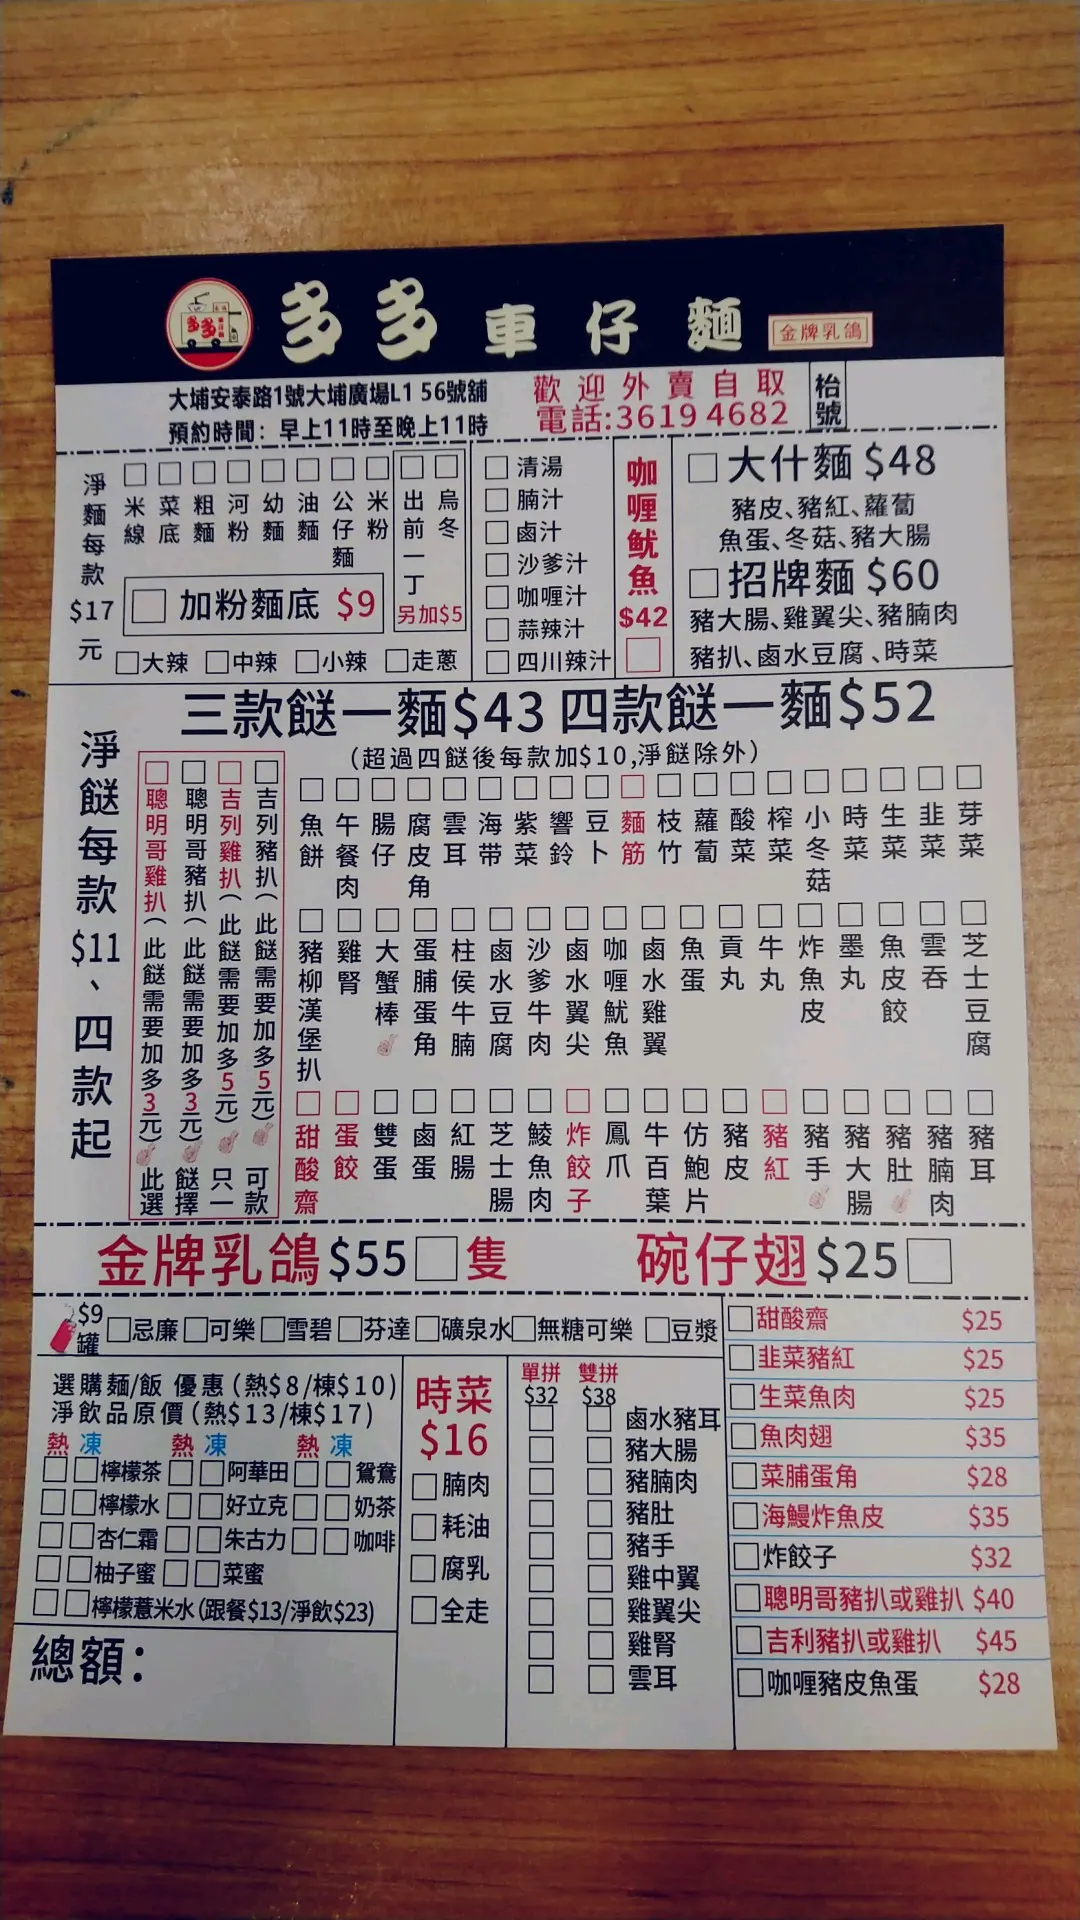 多多車仔麵 金牌乳鴿
多多 車仔麵
大埔安泰路1號大埔廣場L1 56號舖
預約時間：早上11時至晚上11時
歡迎外賣自取
電話:3619 4682
枱號
淨麵每款$17元
米線
菜底
粗麵
河粉
幼麵
油麵
公仔麵
米粉
出前一丁
烏冬
另加$5
加粉麵底 $9
大辣 中辣 小辣 走蔥
清湯
腩汁
鹵汁
沙爹汁
咖喱汁
蒜辣汁
四川辣汁
咖喱魷魚
$42
大什麵 $48
豬皮、豬紅、蘿蔔
魚蛋、冬菇、豬大腸
招牌麵 $60
豬大腸、雞翼尖、豬腩肉
豬扒、鹵水豆腐、時菜
三款餸一麵$43 四款餸一麵$52
(超過四餸後每款加$10,淨餸除外)
淨餸每款$11、四款起
聰明哥雞扒(此餸需要加多3元)
聰明哥豬扒(此餸需要加多3元)
吉列雞扒(此餸需要加多5元)
吉列豬扒(此餸需要加多5元)
此餸只可
選擇一款
魚餅
午餐肉
腸仔
腐皮角
雲耳
海带
紫菜
響鈴
豆卜
麵筋
枝竹
蘿蔔
酸菜
榨菜
小冬菇
時菜
生菜
韭菜
芽菜
豬柳漢堡扒
雞腎
大蟹棒
蛋脯蛋角
柱侯牛腩
鹵水豆腐
沙爹牛肉
鹵水翼尖
咖喱魷魚
鹵水雞翼
魚蛋
貢丸
牛丸
炸魚皮
墨丸
魚皮餃
雲吞
芝士豆腐
甜酸齋
蛋餃
雙蛋
鹵蛋
紅腸
芝士腸
鯪魚肉
炸餃子
鳳爪
牛百葉
仿鮑片
豬皮
豬紅
豬手
豬大腸
豬肚
豬腩肉
豬耳
金牌乳鴿$55 隻 碗仔翅$25
$9罐 忌廉 可樂 雪碧 芬達 礦泉水 無糖可樂 豆漿
選購麵/飯 優惠(熱$8/棟$10)
淨飲品原價(熱$13/棟$17)
熱 凍 熱 凍 熱 凍
檸檬茶 阿華田 鴛鴦
檸檬水 好立克 奶茶
杏仁霜 朱古力 咖啡
柚子蜜 菜蜜
檸檬薏米水(跟餐$13/淨飲$23)
總額：
時菜
$16
腩肉
耗油
腐乳
全走
單拼 雙拼
$32 $38
鹵水豬耳
豬大腸
豬腩肉
豬肚
豬手
雞中翼
雞翼尖
雞腎
雲耳
甜酸齋 $25
韭菜豬紅 $25
生菜魚肉 $25
魚肉翅 $35
菜脯蛋角 $28
海鰻炸魚皮 $35
炸餃子 $32
聰明哥豬扒或雞扒 $40
吉利豬扒或雞扒 $45
咖喱豬皮魚蛋 $28